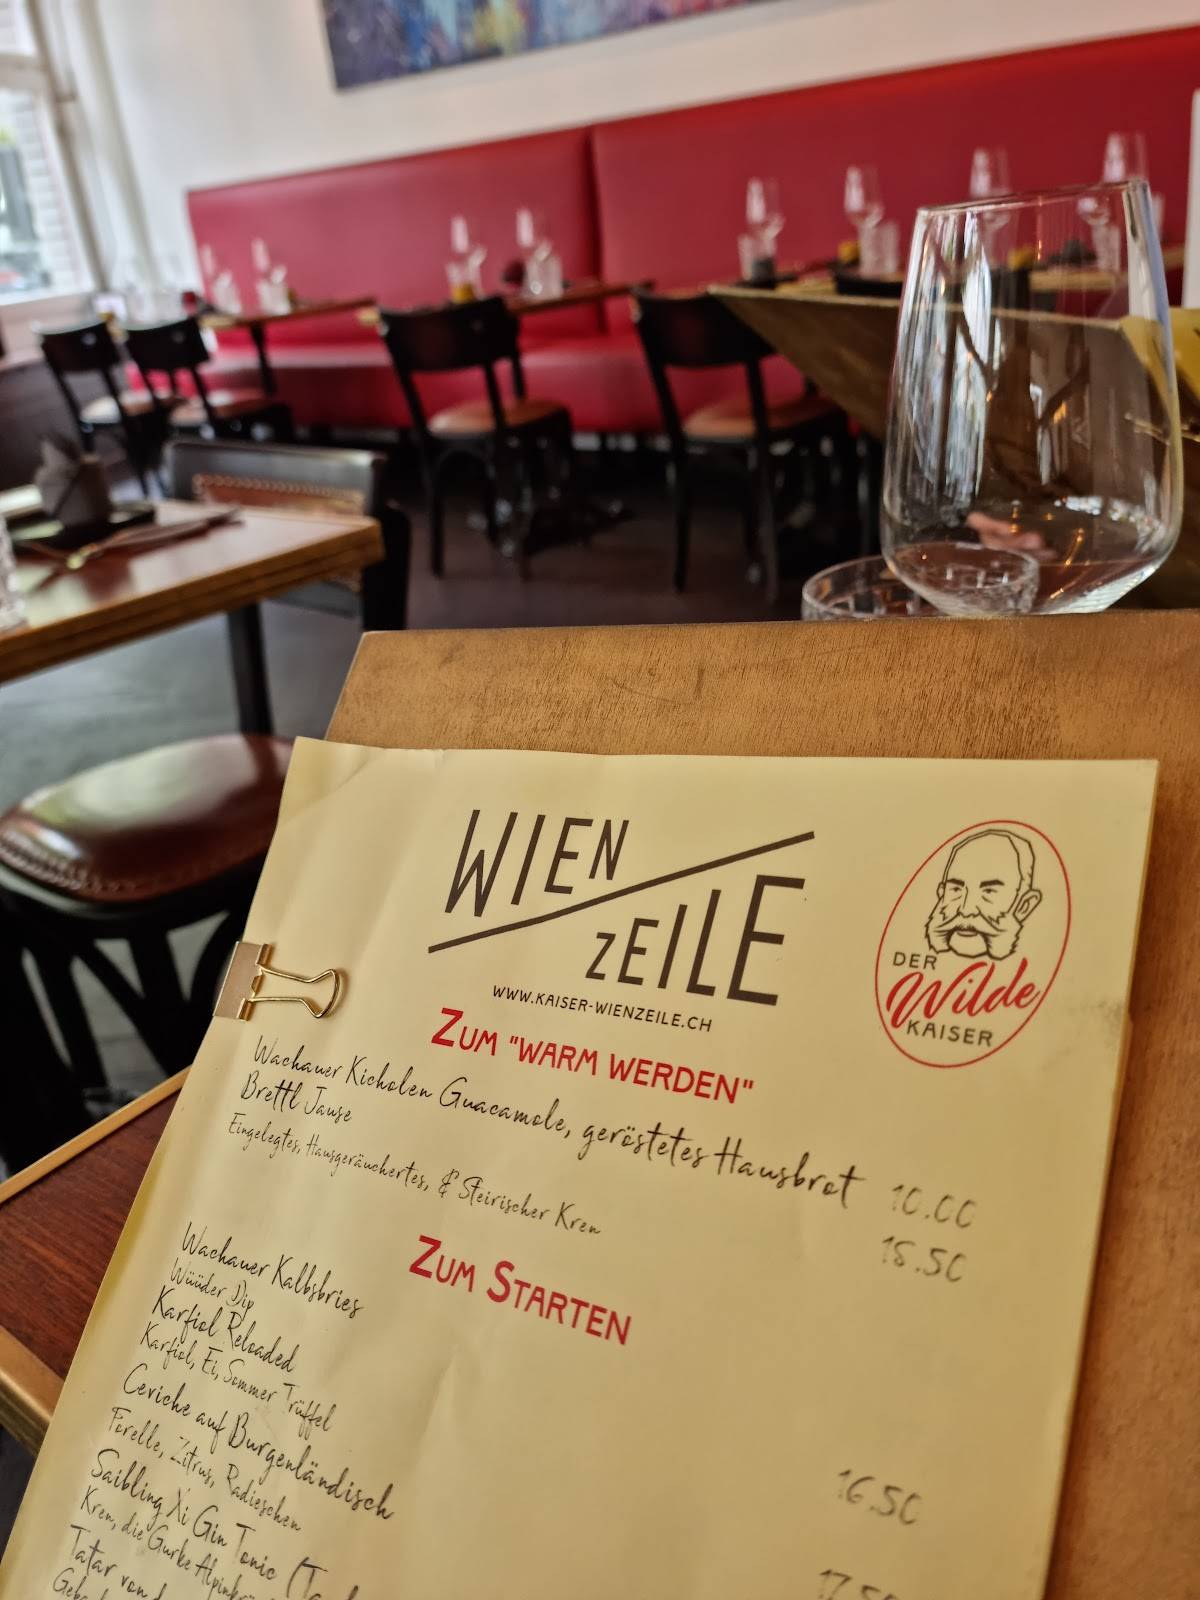 WIEN
ZEILE
WWW.KAISER-WIENZEILE.CH
DER
Wilde
KAISER
ZUM "WARM WERDEN"
Wachauer Kicholen Guacamole, geröstetes Hausbrot 10.00
Brettl Jause 18.50
Eingelegtes, Hausgeräuchertes, & Steirischer Kren
ZUM STARTEN
Wachauer Kalbsbries
Wüüder Dip
Karfiol Reloaded 16.50
Karfiol, Ei, Sommer Trüffel
Ceviche auf Burgenländisch 17.50
Forelle, Zitrus, Radieschen
Saibling Xi Gin Tonic
Kren, die Gurke
Tatar von